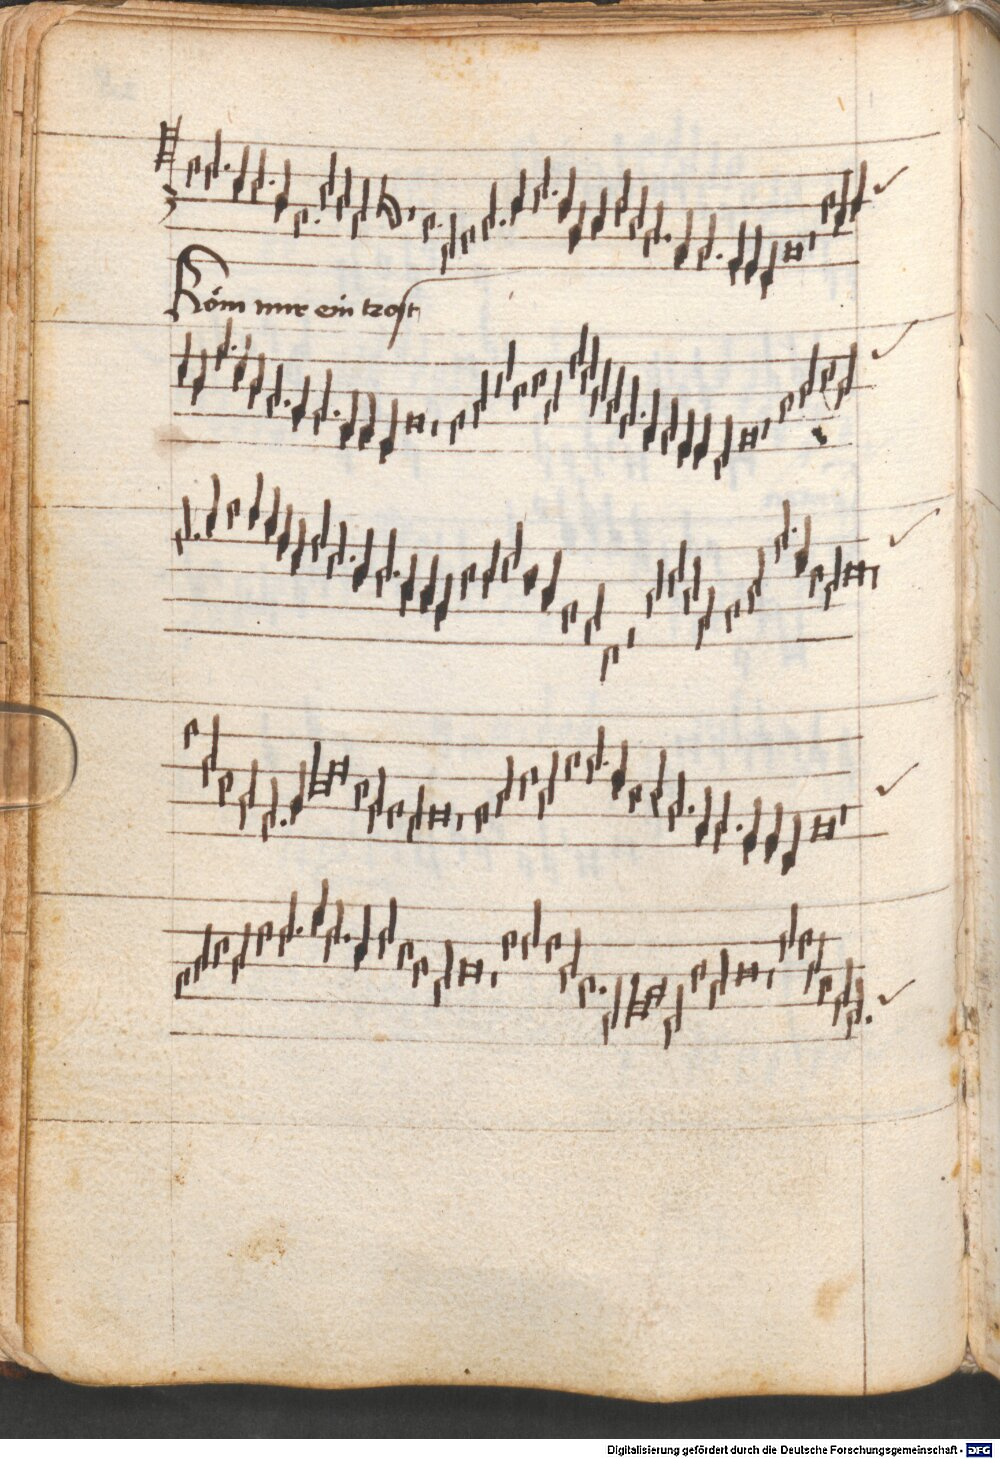 Köm mir ein trost
Digitalisierung gefördert durch die Deutsche Forschungsgemeinschaft - DFG